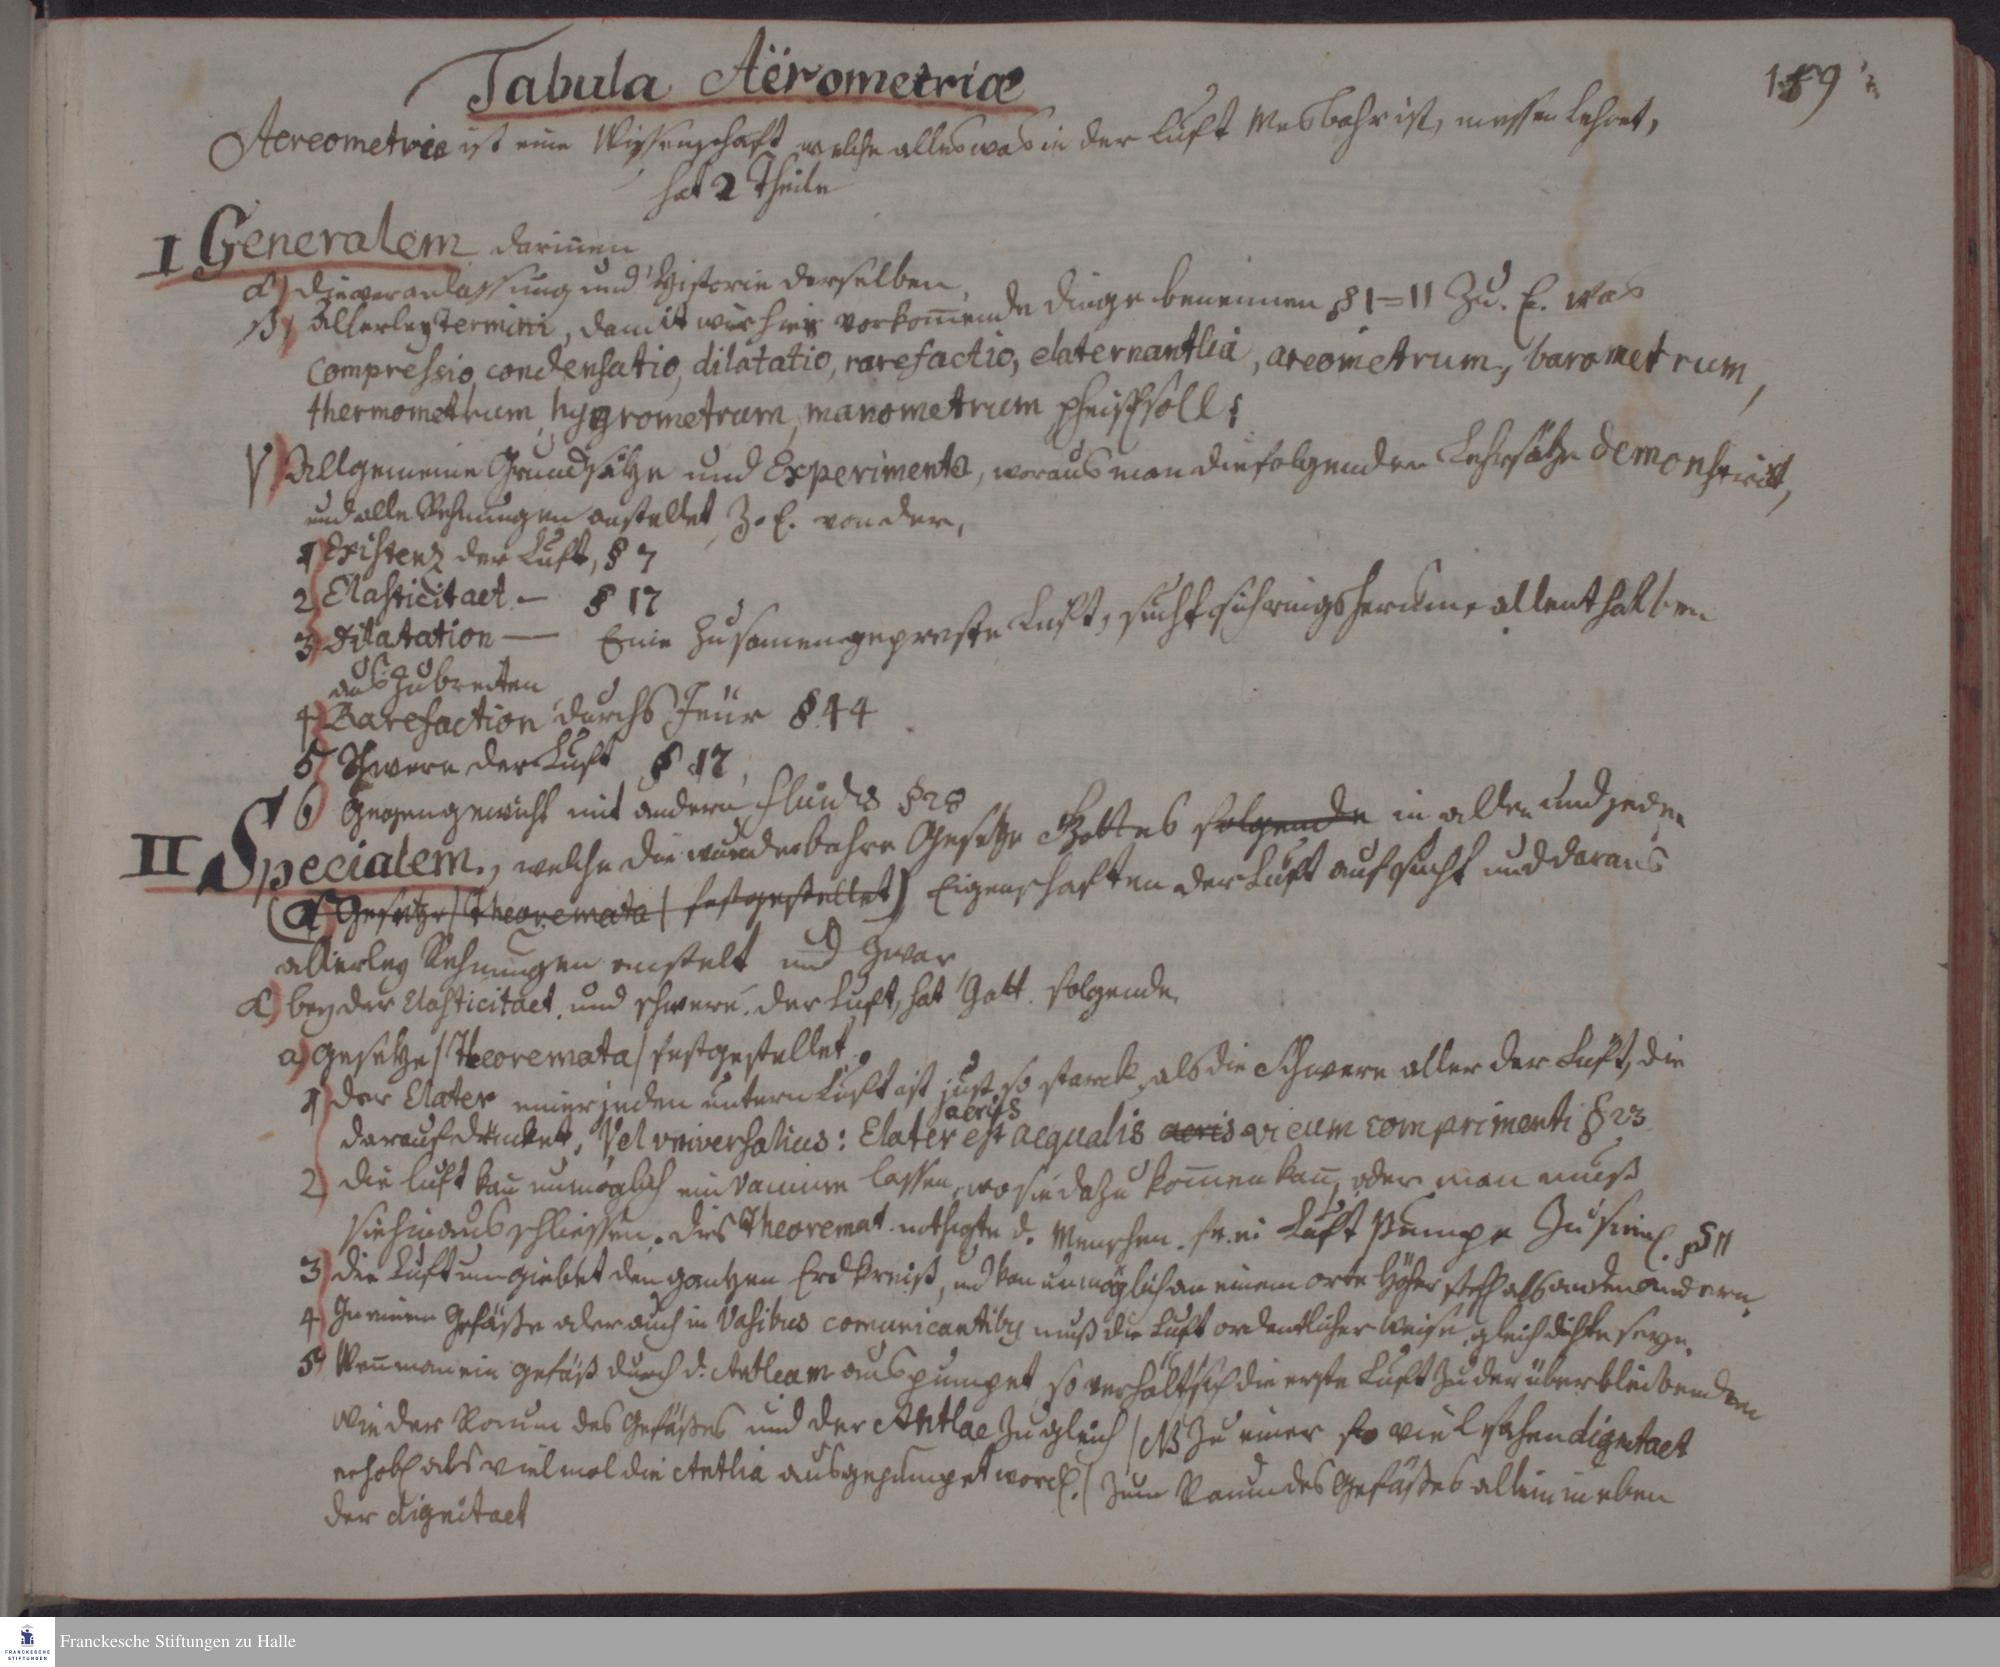 Tabula Aërometriæ
159
Aereometria ist eine Wissenschaft welche alles was in der Luft Mesbahr ist, messen lehret,
hat 2 Theile
I Generalem darinnen
α) die veranlassung und Historie derselben,
β) allerley termini, damit wir hier vorkommende dinge benennen § 1=11 Z. E. was
compressio, condensatio, dilatatio, rarefactio, elater antlia, areometrum, barometrum,
thermometrum, hygrometrum, manometrum heisse soll
γ) Allgemeine Grundsätze und Experimenta, woraus man die folgenden Lehrsätze demonstrirt,
und alle Rechnungen anstellet, Z. E. von der,
1) Existenz der Luft, § 7
2) Elasticitaet — § 17
3) Dilatation — Eine zusamengepreste Luft, sucht sich rings herum allenthalben
auszubreiten
4) Rarefaction durchs Feür § 44
5) Schwere der Luft § 17,
6) Gegengewicht mit andern fluidis § 28
II Specialem, welche die wunderbahre Gesetze Gottes folgende in allen und jeden
(α) Gesetze / Theoremata / festgestellet) Eigenschaften der Luft aufsucht und daraus
allerley Rechnungen anstelt und zwar
α) bey der Elasticitaet und schwere der Luft, hat Gott folgende
a) Gesetze / Theoremata / festgestellet.
1) der Elater einer jeden untern Luft ist just so starck, als die Schwere aller der Luft, die
darauf drücket, Vel universalius: Elater aeris est aequalis aeris vi eum comprimenti § 23
2) Die Luft kan unmöglich ein Vacuum lassen, wo sie dazu kommen kan, oder man muß
sie hinaus schliessen. Dies Theoremat nöthigte d. Menschen Luft Pumpe zu § 11
3) die Luft umgiebet den gantzen Erdkreiß, und kan unmöglich an einem orte höher als an den andern,
4) In einem Gefäße oder auch in Vasibus comunicantibus muß die Luft ordentlicher Weise gleich dichte seyn,
5) Wenn man ein gefäß durch d. Antleam auspumpet, so verhält sich die erste Luft zu der überbleibenden
wie der Raum des Gefäßes und der Antlae zugleich / NB zu einer so vielfachen dignitaet
erhob. als viel mal die Antlia ausgepumpet word. / zum Raum des Gefäßes allein in eben
der dignitaet
Franckesche Stiftungen zu Halle
FRANCKESCHE
STIFTUNGEN